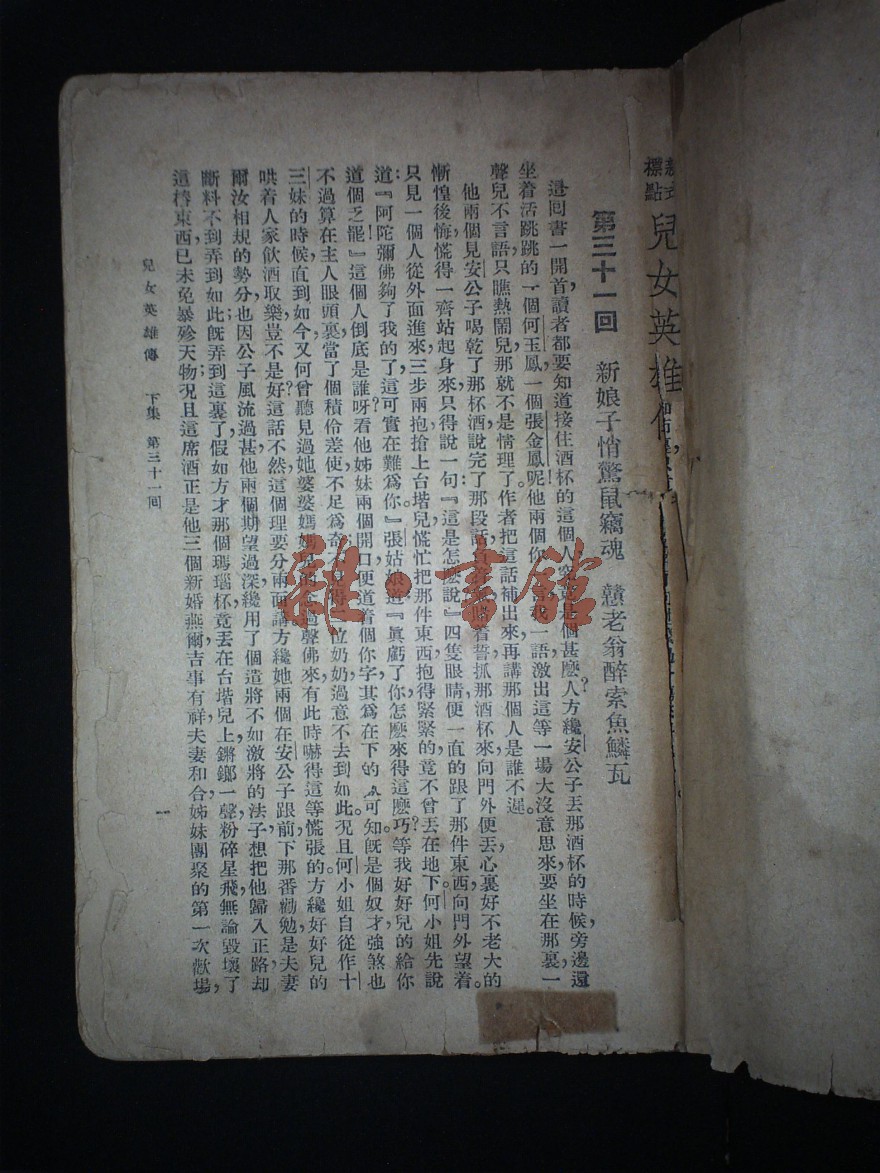 新式標點 兒女英雄
第三十一回　新娘子悄驚鼠竊魂　戇老翁醉索魚鱗瓦
這囘書一開首，讀者都要知道接住酒杯的這個人究竟是個甚麽人？方纔安公子丟那酒杯的時候，旁邊還
坐着活跳跳的一個何玉鳳一個張金鳳呢！他兩個你一言我一語激出這等一場大沒意思來，要坐在那裏一
聲兒不言語，只瞧熱鬧兒，那就不是情理了。作者把這話補出來，再講那個人是誰不遲。
他兩個見安公子喝乾了那杯酒，說完了那段話，着誓，抓那酒杯來向門外便丟，心裏好不老大的
慚惶後悔，慌得一齊站起身來，只得說一句：『這是怎麽說』四隻眼睛便一直的跟了那件東西向門外望着。
只見一個人從外面進來，三步兩抱搶上台堦兒，慌忙把那件東西抱得緊緊的，竟不曾丟在地下。何小姐先說
道：『阿陀彌佛！夠了我的了！這可實在難爲你』張姑娘道：『眞虧了你，怎麽來得這麽巧？等我好好兒的給你
道個乏罷』這個人倒底是誰呀？看他姊妹兩個開口便道着個你字，其爲在下的人可知。旣是個奴才，強煞也
不過算在主人眼頭裏當了個積伶差使，不足爲奇，位奶奶過意不去到如此。况且何小姐自從作十
三妹的時候直到如今，又何曾聽見過她婆婆媽媽過聲佛來？有此時嚇得這等慌張的，方纔好好兒的
哄着人家飮酒取樂，豈不是好？這話不然，這個理要分兩面講。方纔她兩個在安公子跟前下那番勸勉，是夫妻
爾汝相規的勢分，也因公子風流過甚，他兩個期望過深，纔用了個遣將不如激將的法子，想把他歸入正路，却
斷料不到弄到如此；旣弄到這裏了，假如方才那個瑪瑙杯竟丟在台堦兒上，鏘鎯一聲，粉碎星飛，無論毁壞了
這樁東西，已未免暴殄天物；况且這席酒正是他三個新婚燕爾，吉事有祥，夫妻和合，姊妹團聚的第一次歡場，
兒女英雄傳　下集　第三十一回　一
龍·書館